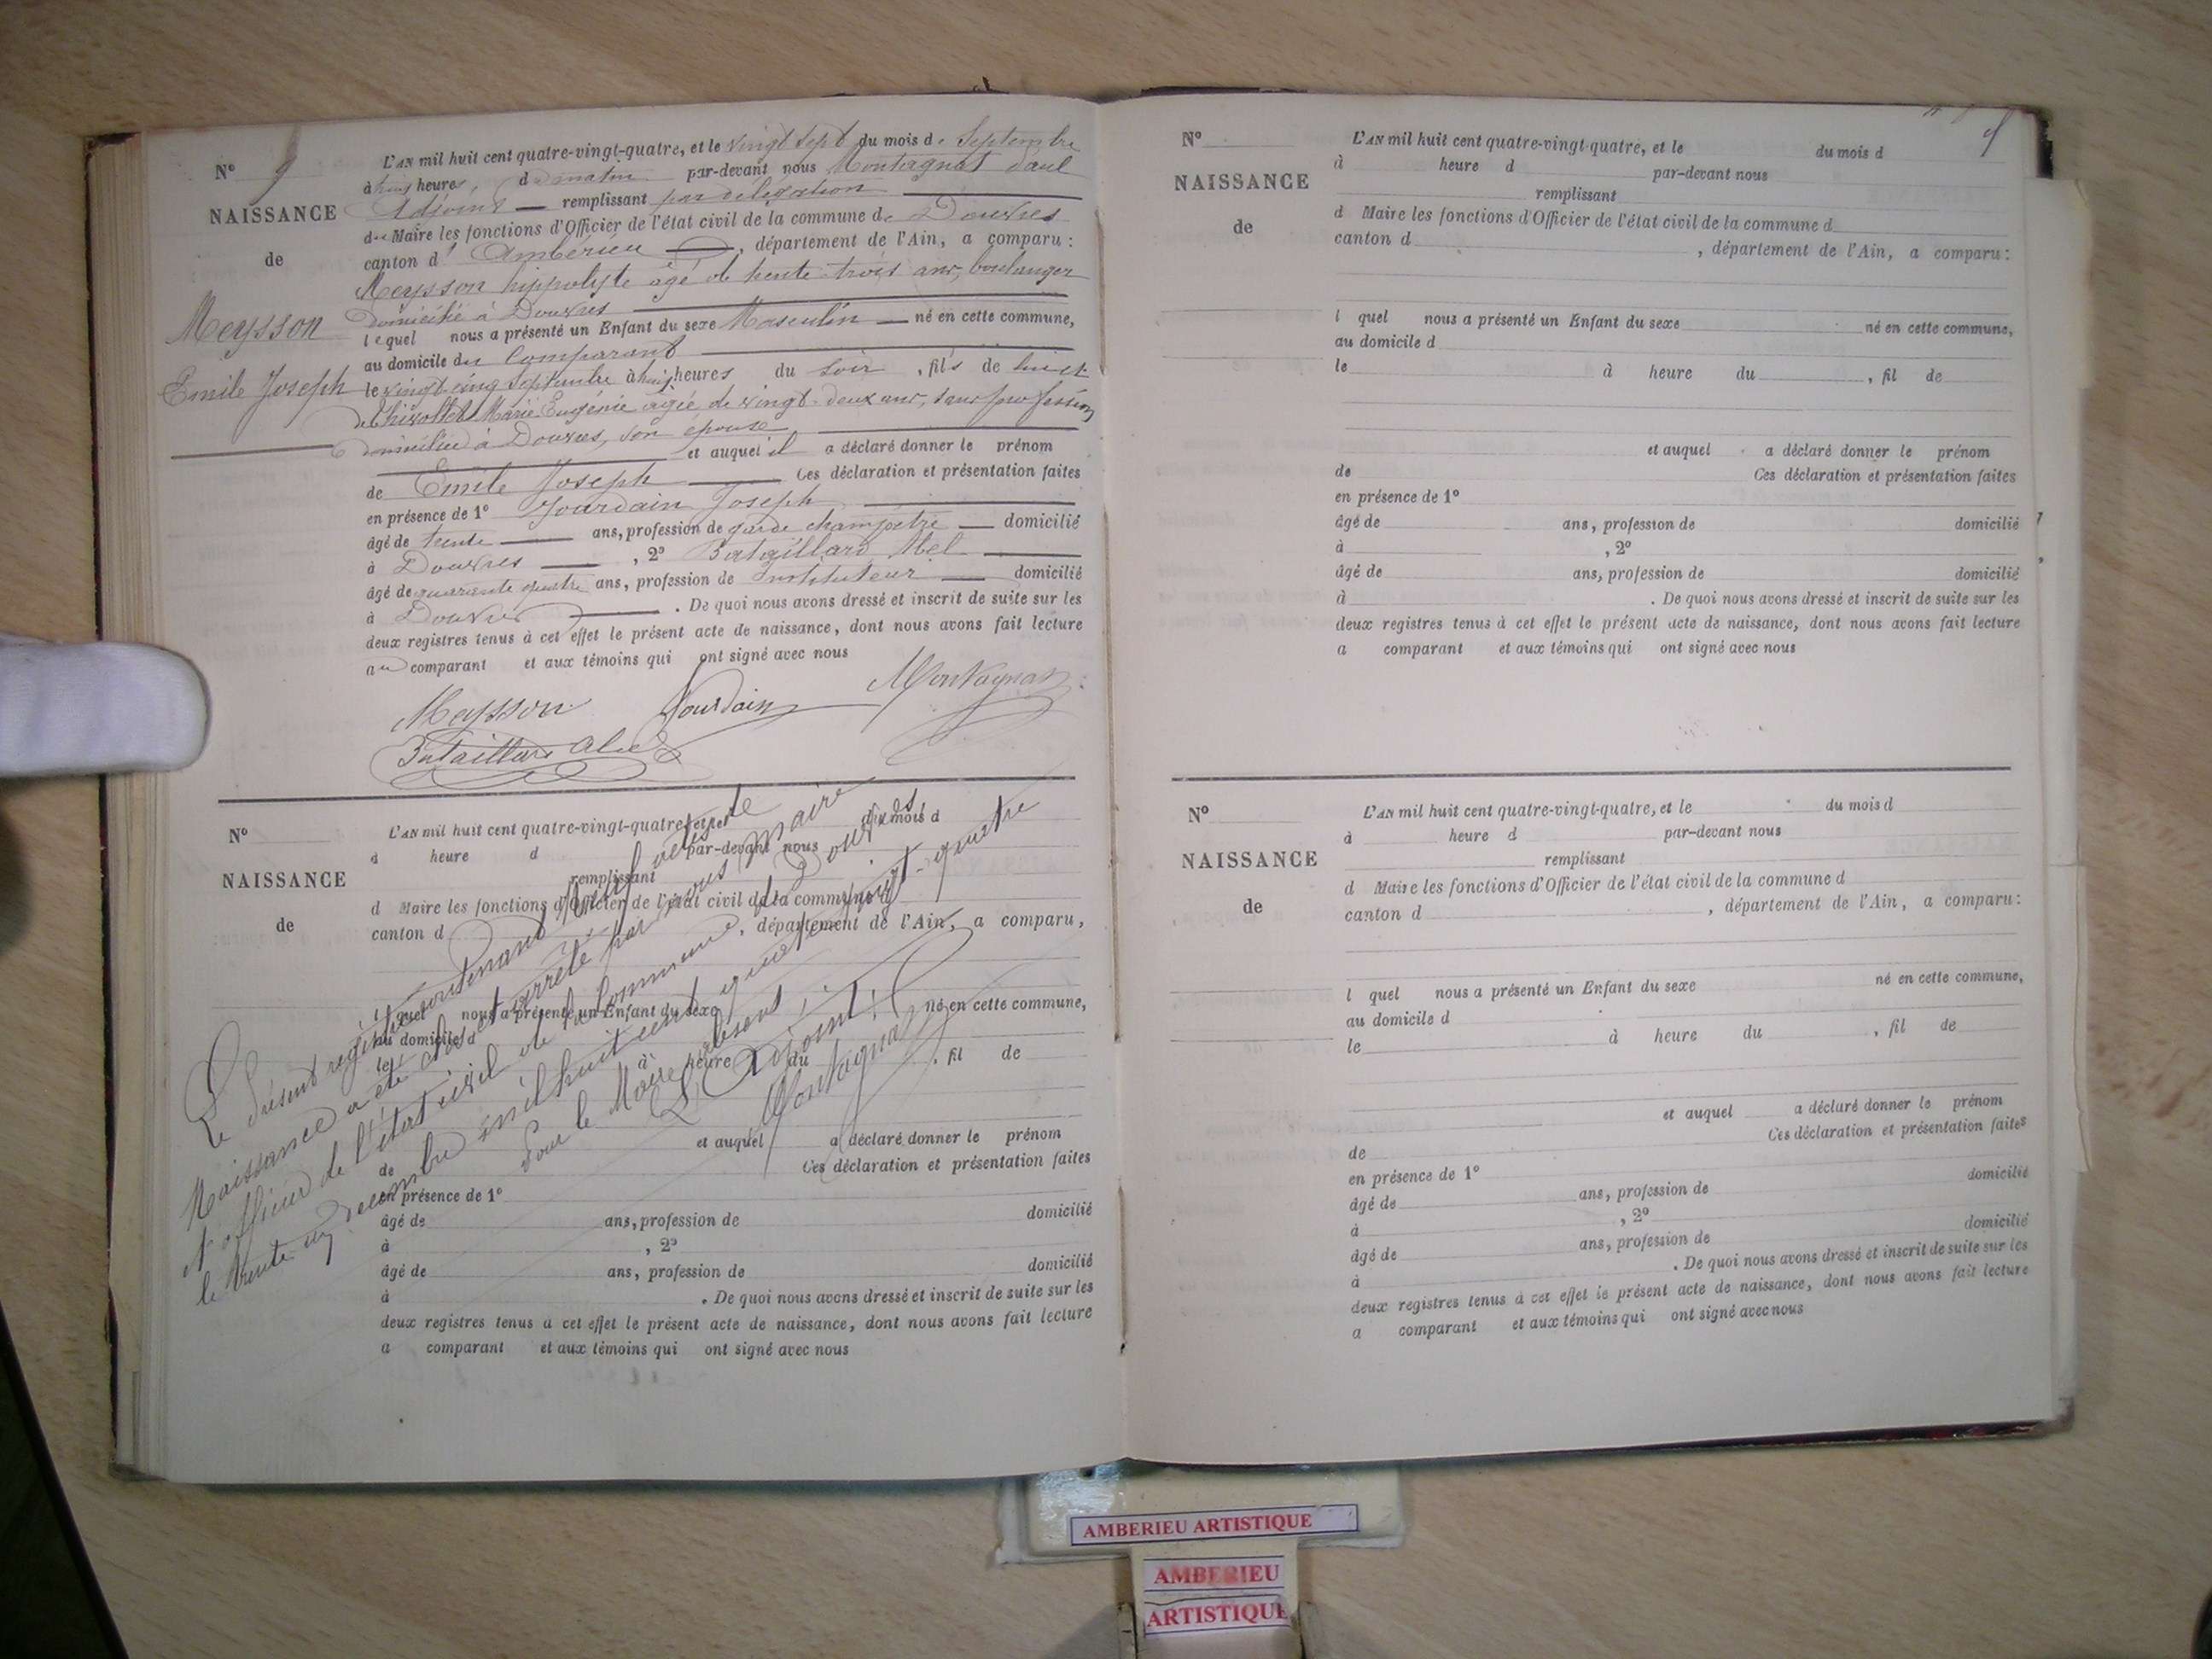 N° 9
NAISSANCE
de
Meysson
Emile Joseph
L'AN mil huit cent quatre-vingt-quatre, et le vingt sept du mois de Septembre
à huit heures, du matin par-devant nous Montagnat Paul
Adjoint remplissant par délégation
du Maire les fonctions d'Officier de l'état civil de la commune de Douvres
canton d' Ambérieu, département de l'Ain, a comparu :
Meysson hippolyte agé de trente-trois ans, boulanger
domicilié à Douvres
lequel nous a présenté un Enfant du sexe Masculin né en cette commune,
au domicile du Comparant
le vingt cinq Septembre à huit heures du soir, fils de lui et
de Chizollet Marie Eugénie agée de vingt-deux ans, sans profession
domiciliée à Douvres, son épouse
et auquel il a déclaré donner le prénom
de Emile Joseph Ces déclaration et présentation faites
en présence de 1° Jourdain Joseph
âgé de trente ans, profession de garde champêtre domicilié
à Douvres, 2° Bataillard Abel
âgé de quarante quatre ans, profession de Instituteur domicilié
à Douvres. De quoi nous avons dressé et inscrit de suite sur les
deux registres tenus à cet effet le présent acte de naissance, dont nous avons fait lecture
au comparant et aux témoins qui ont signé avec nous
Meysson Jourdain Montagnat
Bataillard Abel
N°
NAISSANCE
de
L'AN mil huit cent quatre-vingt-quatre, et le du mois d
à heure d par-devant nous
remplissant
d Maire les fonctions d'Officier de l'état civil de la commune d
canton d, département de l'Ain, a comparu,
l quel nous a présenté un Enfant du sexe né en cette commune,
au domicile d
le à heure du, fil de
et auquel a déclaré donner le prénom
de Ces déclaration et présentation faites
en présence de 1°
âgé de ans, profession de domicilié
à, 2°
âgé de ans, profession de domicilié
à. De quoi nous avons dressé et inscrit de suite sur les
deux registres tenus à cet effet le présent acte de naissance, dont nous avons fait lecture
a comparant et aux témoins qui ont signé avec nous
Le présent registre contenant neuf actes de
Naissance a été clos et arrêté par nous maire
officier de l'état civil de la commune de Douvres
le trente un décembre mil huit cent quatre vingt-quatre
Pour le Maire absent :
L'Adjoint :
Montagnat
9
N°
NAISSANCE
de
L'AN mil huit cent quatre-vingt-quatre, et le du mois d
à heure d par-devant nous
remplissant
d Maire les fonctions d'Officier de l'état civil de la commune d
canton d, département de l'Ain, a comparu :
l quel nous a présenté un Enfant du sexe né en cette commune,
au domicile d
le à heure du, fil de
et auquel a déclaré donner le prénom
de Ces déclaration et présentation faites
en présence de 1°
âgé de ans, profession de domicilié
à, 2°
âgé de ans, profession de domicilié
à. De quoi nous avons dressé et inscrit de suite sur les
deux registres tenus à cet effet le présent acte de naissance, dont nous avons fait lecture
a comparant et aux témoins qui ont signé avec nous
N°
NAISSANCE
de
L'AN mil huit cent quatre-vingt-quatre, et le du mois d
à heure d par-devant nous
remplissant
d Maire les fonctions d'Officier de l'état civil de la commune d
canton d, département de l'Ain, a comparu :
l quel nous a présenté un Enfant du sexe né en cette commune,
au domicile d
le à heure du, fil de
et auquel a déclaré donner le prénom
de Ces déclaration et présentation faites
en présence de 1°
âgé de ans, profession de domicilié
à, 2°
âgé de ans, profession de domicilié
à. De quoi nous avons dressé et inscrit de suite sur les
deux registres tenus à cet effet le présent acte de naissance, dont nous avons fait lecture
a comparant et aux témoins qui ont signé avec nous
AMBERIEU ARTISTIQUE
AMBERIEU
ARTISTIQUE